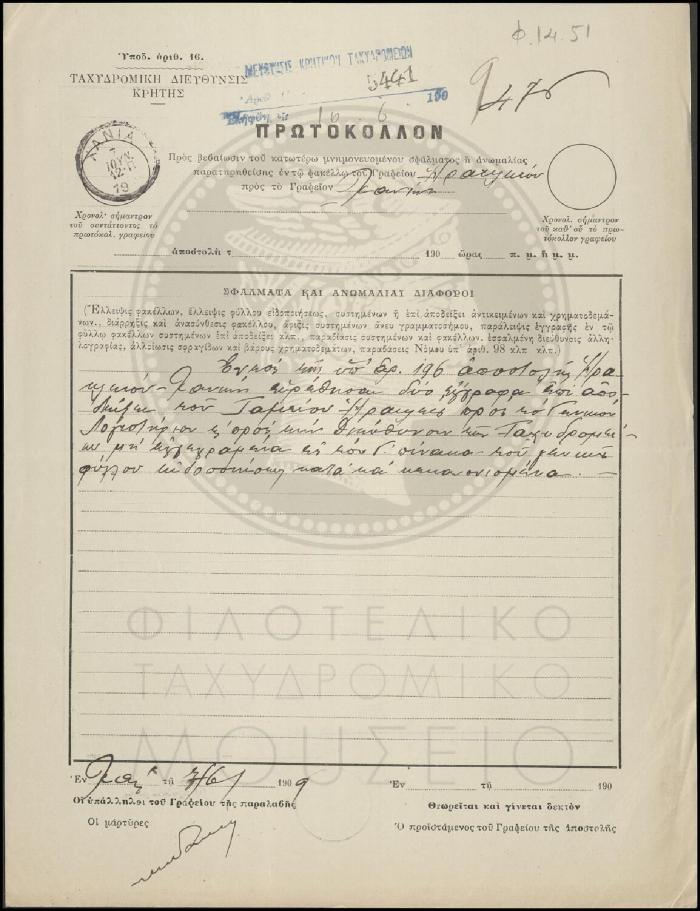 φ.14.51
Ὑποδ. ἀριθ. 16.
ΤΑΧΥΔΡΟΜΙΚΗ ΔΙΕΥΘΥΝΣΙΣ
ΚΡΗΤΗΣ
ΔΙΕΥΘΥΝΣΙΣ ΚΡΗΤΙΚΩΝ ΤΑΧΥΔΡΟΜΕΙΩΝ
Ἀριθ. 5441
16 6 190
9
476
ΠΡΩΤΟΚΟΛΛΟΝ
ΧΑΝΙΑ
7
ΙΟΥΝ.
12-Π
Πρὸς βεβαίωσιν τοῦ κατωτέρω μνημονευομένου σφάλματος ἢ ἀνωμαλίας
παρατηρηθείσης ἐν τῷ φακέλλῳ τοῦ Γραφείου
πρὸς τὸ Γραφεῖον
Χρονολ. σήμαντρον
τοῦ συντάττοντος τὸ
πρωτόκολ. γραφείου
Χρονολ. σήμαντρον
τοῦ καθ' οὗ τὸ πρω-
τόκολλον γραφείου
ἀποστολὴ τ 190 ὥρας π. μ. ἢ μ. μ.
ΣΦΑΛΜΑΤΑ ΚΑΙ ΑΝΩΜΑΛΙΑΙ ΔΙΑΦΟΡΟΙ
(Ἔλλειψις φακέλλων, ἔλλειψις φύλλου εἰδοποιήσεως, συστημένων ἢ ἐπὶ ἀποδείξει ἀντικειμένων καὶ χρηματοδεμά-
των, διάρρηξις καὶ ἀνασύνθεσις φακέλου, ἄφιξις συστημένων ἄνευ γραμματοσήμου, παράλειψις ἐγγραφῆς ἐν τῷ
φύλλῳ φακέλλων συστημένων ἐπὶ ἀποδείξει κλπ., παραβίασις συστημένων καὶ φακέλλων, ἐσφαλμένη διεύθυνσις ἀλλη-
λογραφίας, ἀλλοίωσις σφραγίδων καὶ βάρους χρηματοδεμάτων, παραβάσεις Νόμου ὑπ' ἀριθ. 98 κλπ κλπ.)
Ἐντὸς τῆς ὑπ' ἀρ. 196 ἀποστολῆς Ἡρα
κλείου - Χανίων εὑρέθησαν δύο ἔγγραφα ἐπὶ ἀπο-
δείξει τοῦ Ταμείου πρὸς τὸ Γενικὸν
Λογιστήριον καὶ πρὸς τὴν Διεύθυνσιν τῶν Ταχυδρομεί-
ων μὴ ἐγγεγραμμένα εἰς τὸν Γ. πίνακα τοῦ
φύλλου εἰδοποιήσεως κατὰ τὰ κεκανονισμένα.
ΦΙΛΟΤΕΛΙΚΟ
ΤΑΧΥΔΡΟΜΙΚΟ
ΜΟΥΣΕΙΟ
Ἐν τῇ 7/6/ 1909
Ἐν τῇ 190
Οἱ ὑπάλληλοι τοῦ Γραφείου τῆς παραλαβῆς
Οἱ μάρτυρες
Θεωρεῖται καὶ γίνεται δεκτὸν
Ὁ προϊστάμενος τοῦ Γραφείου τῆς ἀποστολῆς